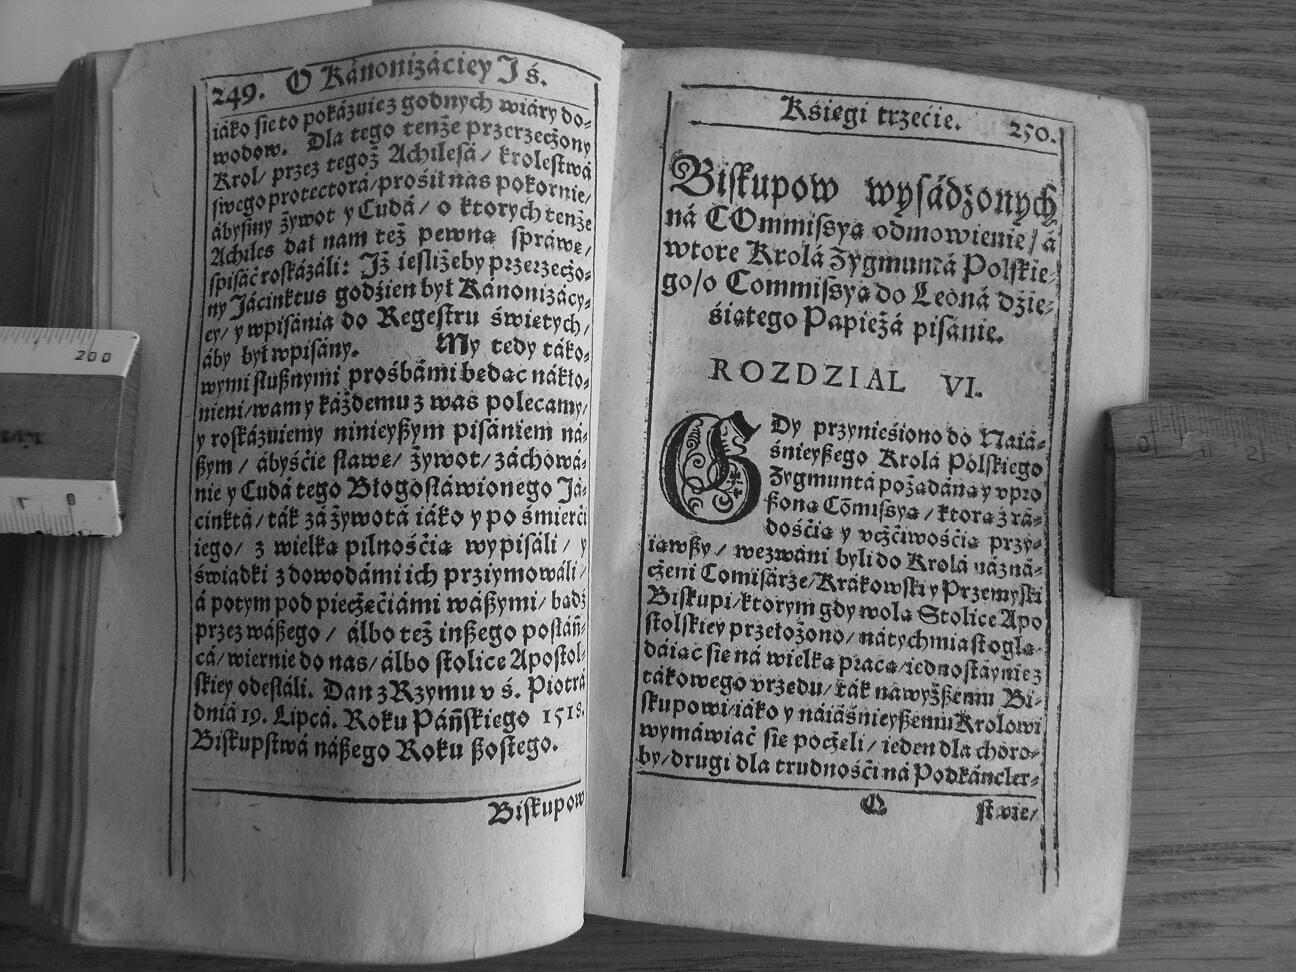 249. O Kánonizáciey J ś.
iáko sie to pokázuie z godnych wiáry do-
wodow. Dla tego tenże przerzeczony
Krol/ przez tegoż Achilesá/ krolestwá
swego protectorá/ prosił nas pokornie/
ábysmy żywot y Cudá/ o ktorych tenże
Achiles dał nam też pewną spráwę/
spisáć roskázáli: Iż iesliżeby przerzeczo-
ny Jácinktus godźien był Kánonizácy-
ey/ y wpisánia do Regestru świętych/
áby był wpisány. My tedy táko-
wymi słußnymi prośbámi będąc nákło-
nieni/ wam y káżdemu z was polecamy/
y roskázuiemy ninieyßym pisániem ná-
ßym/ ábyśćie sławę/ żywot/ záchowá-
nie y Cudá tego Błogosłáwionego Já-
cinktá/ ták zá żywotá iáko y po śmierći
iego/ z wielką pilnośćią wypisáli/ y
świadki z dowodámi ich przyimowáli/
á potym pod pieczęćiámi wáßymi/ bądź
przez wáßego/ álbo też inßego posłáń-
cá/ wiernie do nas/ álbo stolice Apostol-
skiey odesłáli. Dan z Rzymu v ś. Piotrá
dniá 19. Lipcá. Roku Páńskiego 1518.
Biskupstwá náßego Roku ßostego.
Biskupow
Księgi trzećie. 250.
Biskupow wysádzonych
ná COmmissyą odmowienie/ á
wtore Krolá Zygmuntá Polskie-
go/ o Commissyą do Leoná dźie-
śiątego Papieżá pisanie.
ROZDZIAL VI.
GDy przynieśiono do Naiá-
śnieyßego Krolá Polskiego
Zygmuntá pożądáną y vpro
ßoną Cõmissyą/ ktorą z rá-
dośćią y vcżćiwośćią przy-
iąwßy/ wezwáni byli do Krolá náźná-
cżeni Comisárze/ Krákowski y Przemyski
Biskupi/ ktorym gdy wolą Stolice Apo
stolskiey przełożono/ nátychmiast oglą-
dáiąc się ná wielką pracą/ iednostáynie z
tákowego vrzędu/ ták nawyżßemu Bi-
skupowi/ iáko y náiáśnieyßemu Krolowi
wymáwiáć się pocżęli/ ieden dla choro-
by/ drugi dla trudnośći ná Podkáncler-
Q stwie/